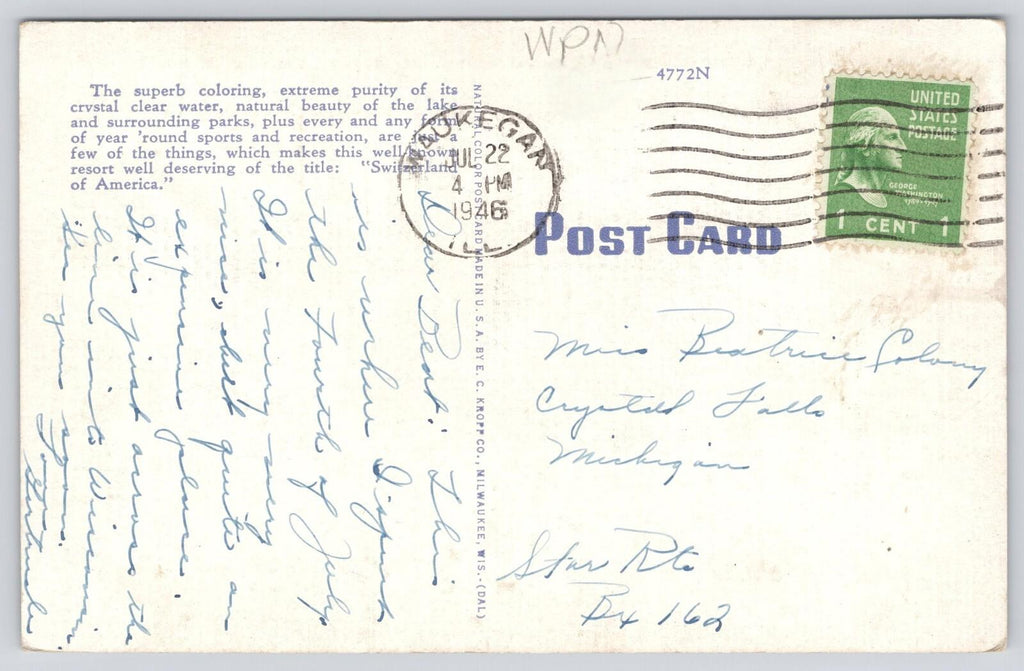 WPN
4772N
The superb coloring, extreme purity of its
crystal clear water, natural beauty of the lake
and surrounding parks, plus every and any form
of year 'round sports and recreation, are just a
few of the things, which makes this well-known
resort well deserving of the title: "Switzerland
of America."
WAUKEGAN
JUL 22
4 PM
1946
ILL.
UNITED
STATES
POSTAGE
GEORGE
WASHINGTON
1789-1797
1 CENT 1
POST CARD
NATURAL COLOR POST CARD MADE IN U. S. A. BY E. C. KROPP CO., MILWAUKEE, WIS.-(DAL)
Dear Beat: This
is where I spent
the Fourth of July
It is very very
nice, but quite an
expensive place.
It is just across the
line into Wisconsin.
See you soon.
Gertrude
Miss Beatrice Colony
Crystal Falls
Michigan
Star Rte
Bx 162